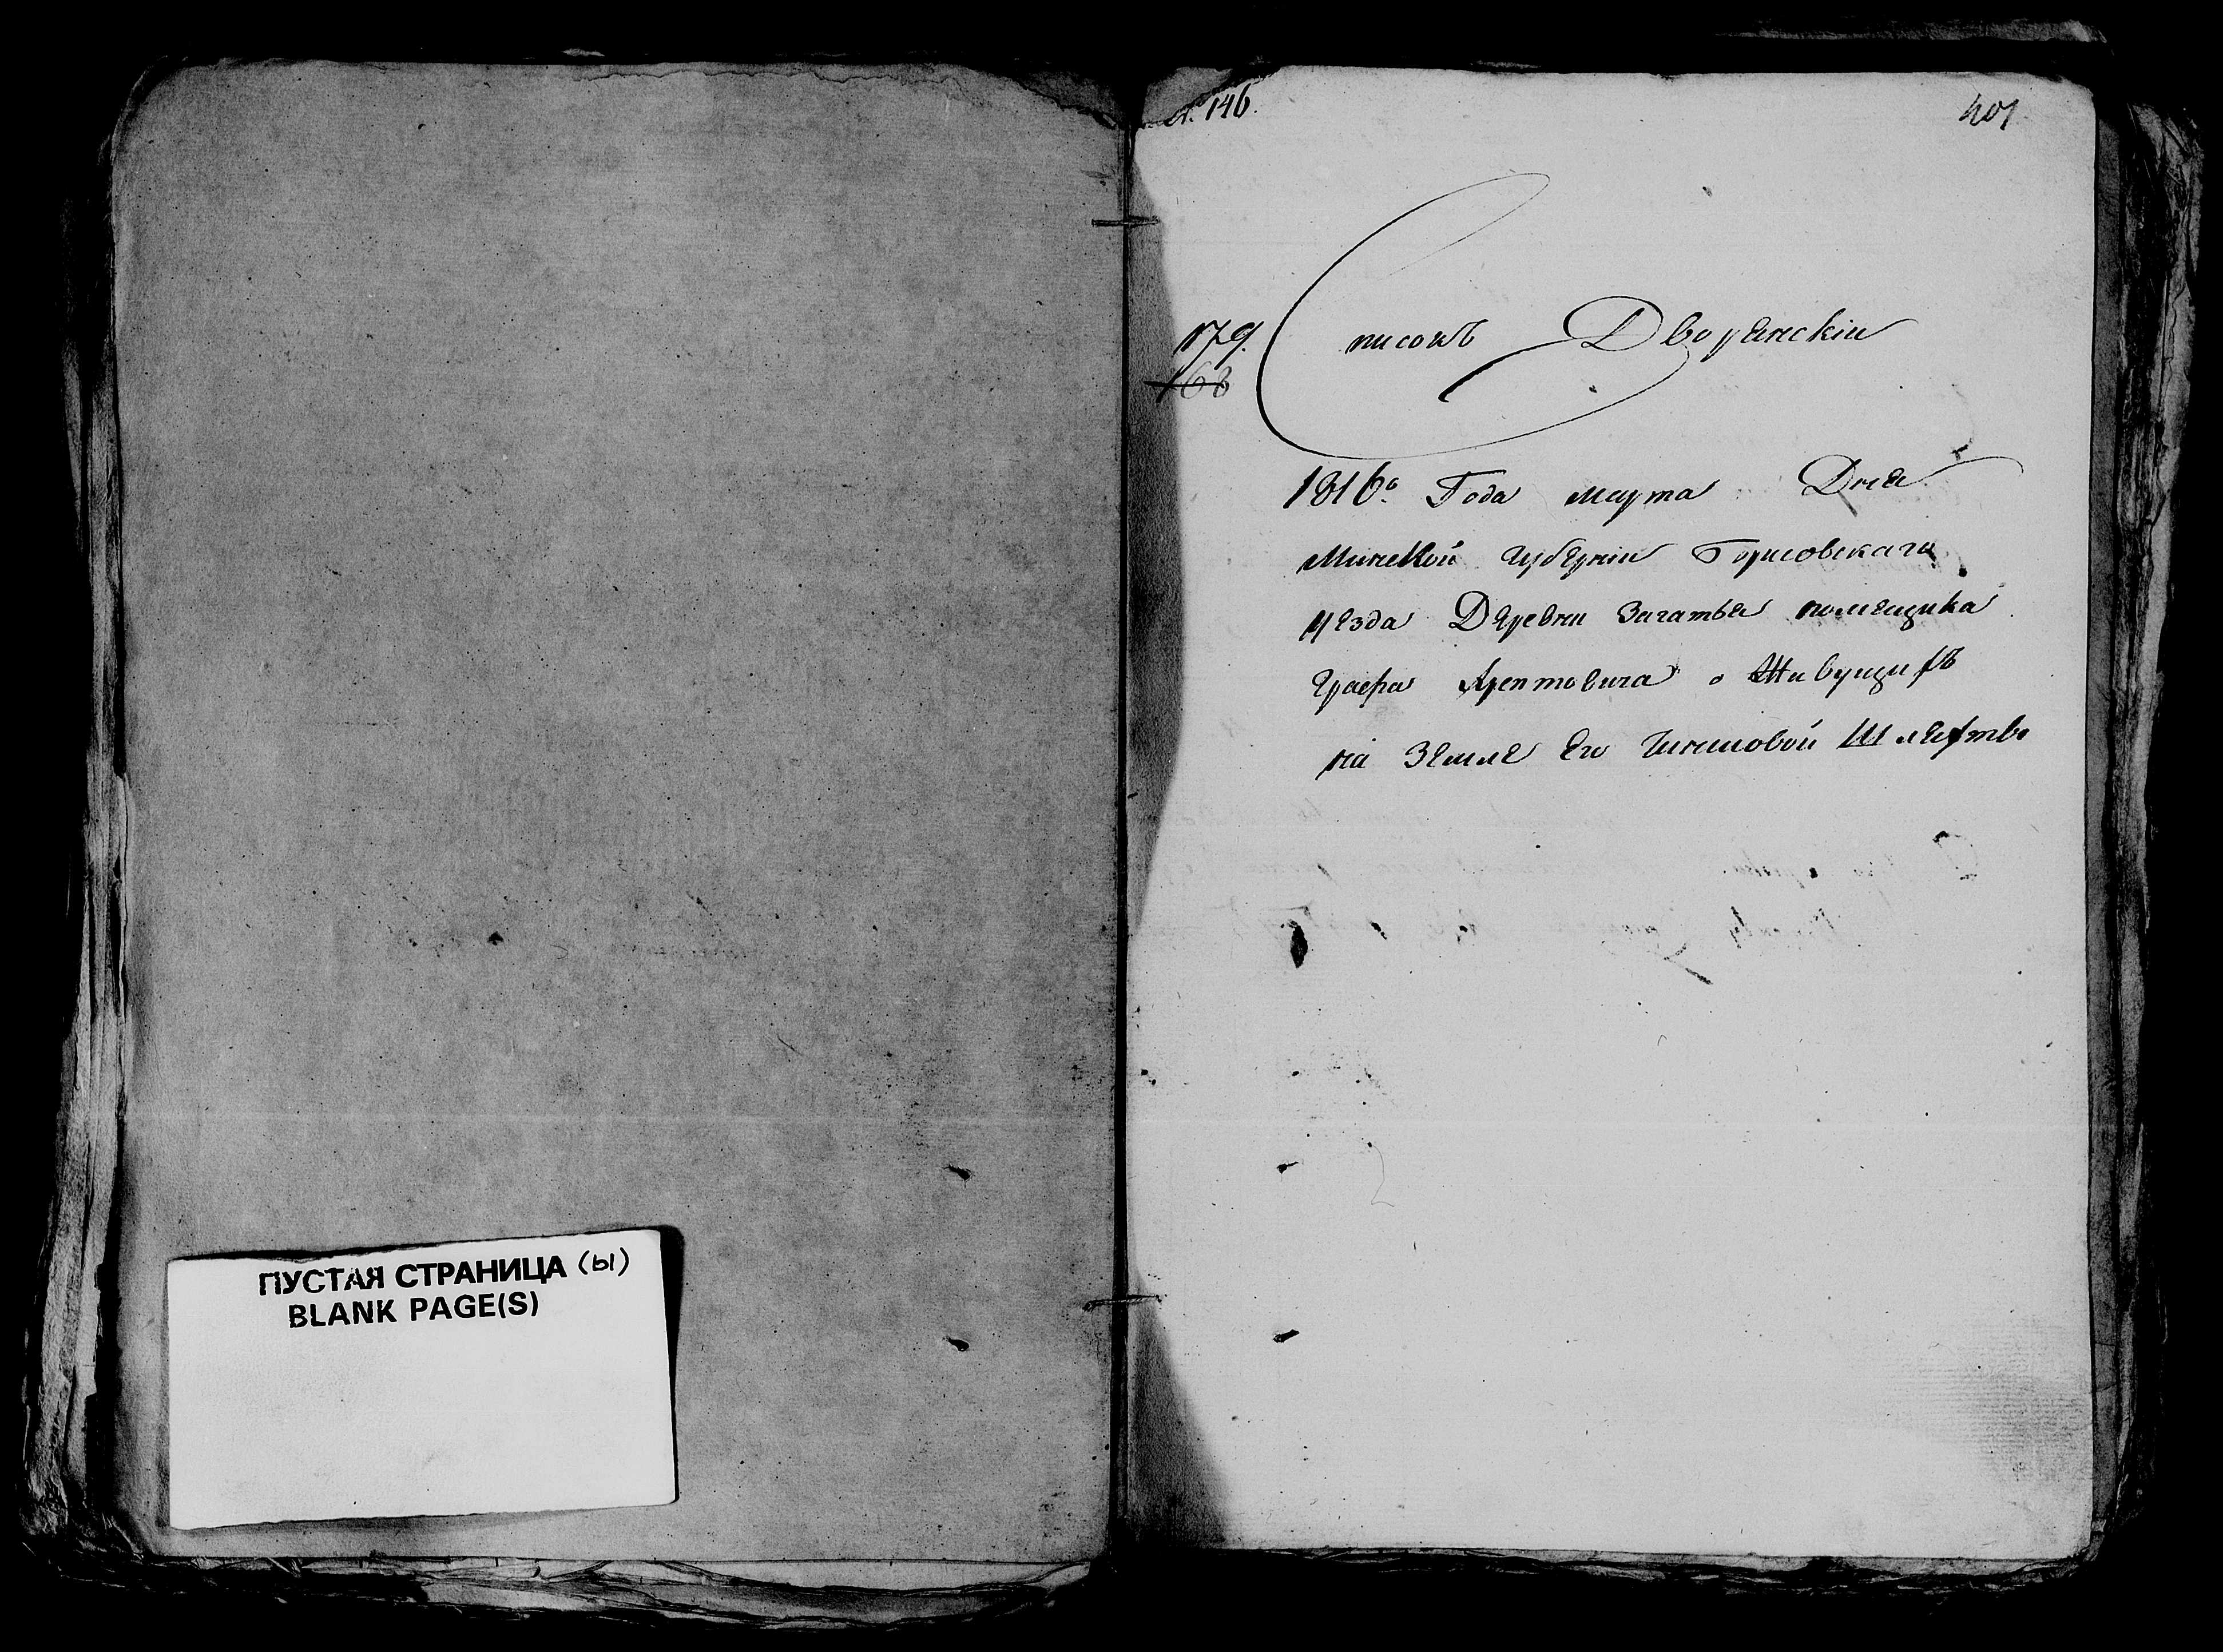 ПУСТАЯ СТРАНИЦА (ы)
BLANK PAGE(S)
146.
401
179.
168
Списокъ Дворянскіи
1816го Года марта Дня
Минской губерніи Борисовскаго
уезда Деревни Загатья помещика
графа Хрептовича о Живущихъ
на Земле Его Чиншовой Шляхтв